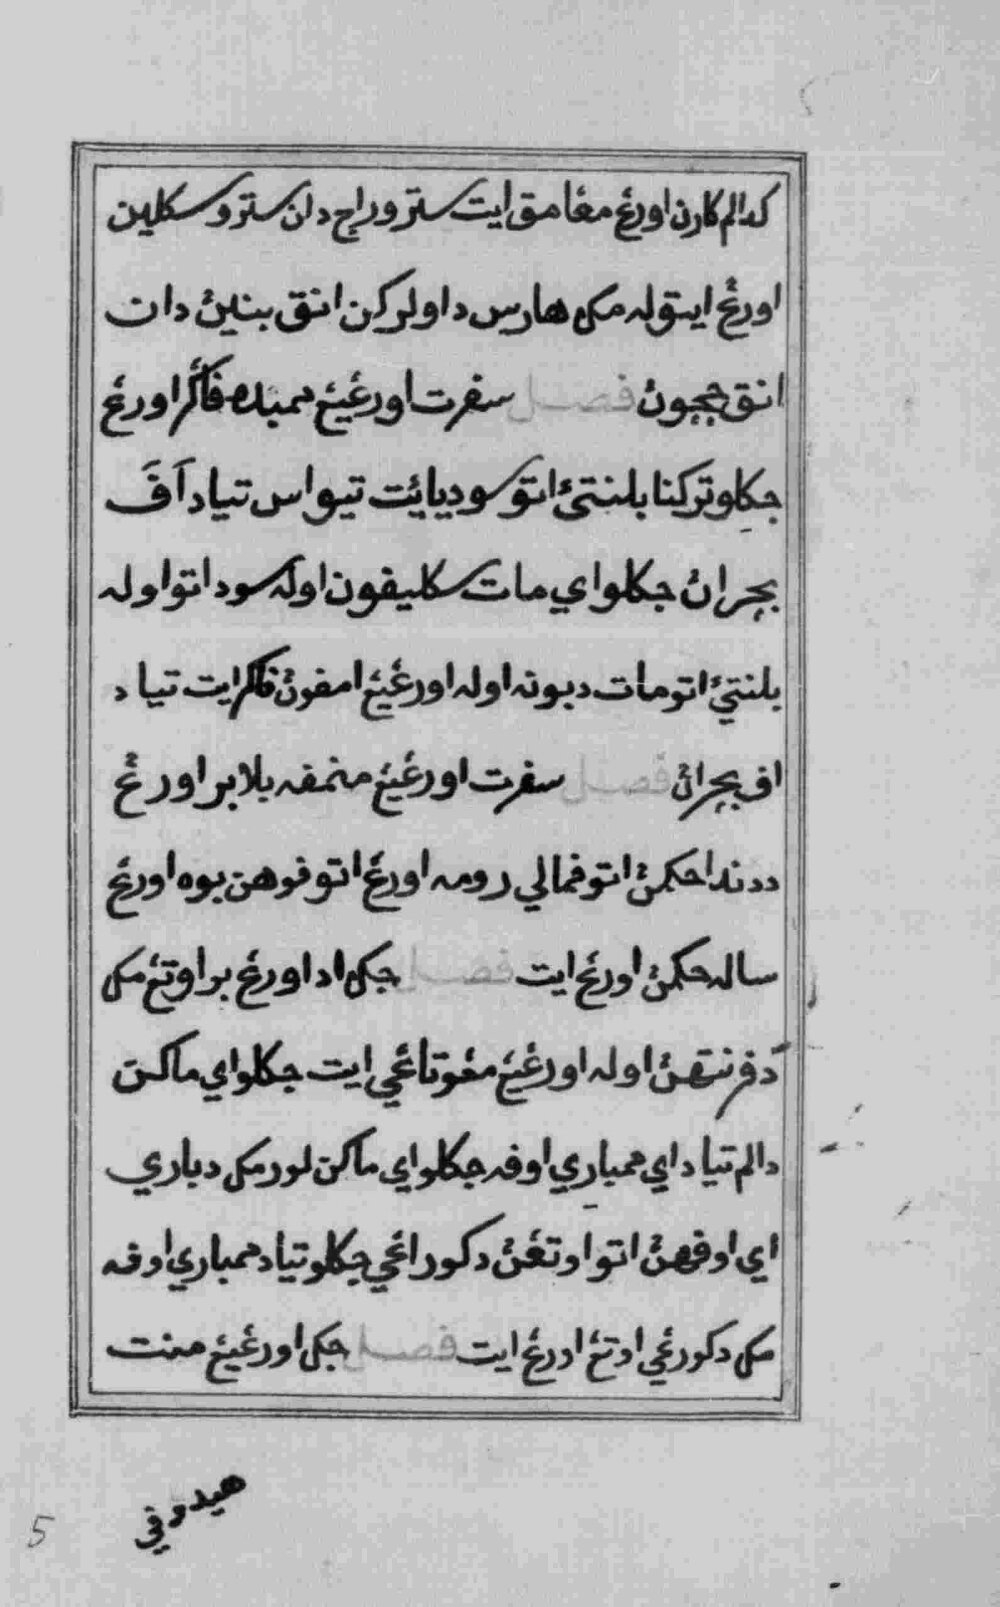 كدالم كارن اورغ مڠامق ايت ستروراج دان سترو سكلين
اورڠ ايتوله مك هارس داولركن انق بنين دان
انق ججون فصل سفرت اورڠيڠ ممبده فاكر اورڠ
جكلو تركنا بلنتيء اتو سوديايت تيواس تياد اف
بجران جكلواي مات سكليفون اوله سودا اتو اوله
بلنتيء اتو مات دبونه اوله اورڠيڠ امفون فاكر ايت تياد
اف بجران فصل سفرت اورڠيڠ منمفه بلابر اورڠ
ددندا حكمن اتو فمالي رومه اورڠ اتو فوهن بوه اورڠ
ساله حكمن اورڠ ايت فصل جك اد اورڠ براوتڠ مك
دفرنتهن اوله اورڠيڠ مڠوتاڠي ايت جكلواي ماكن
دالم تياد اي ممباري اوفه جكلواي ماكن لور مك دباري
اي اوفهن اتو اوتڠن دكوراڠي جكلو تياد ممباري اوفه
مك دكورڠي اوتڠ اورڠ ايت فصل جك اورڠيڠ منت
هيدوفي
5